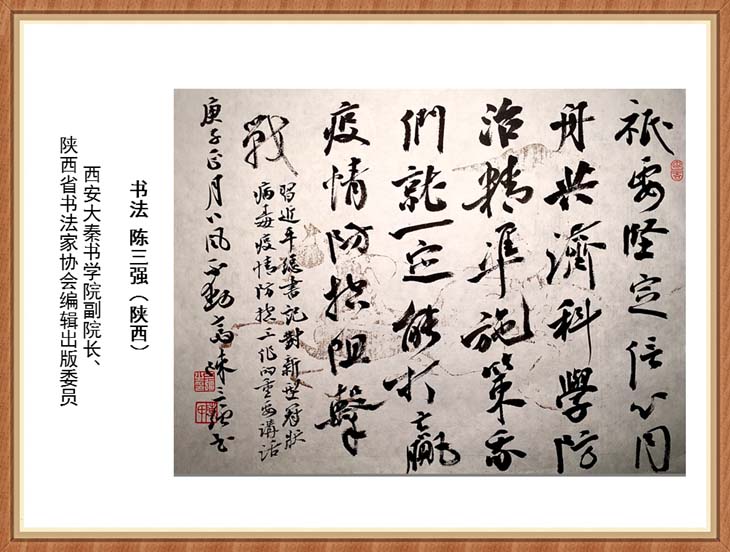 祇要堅定信心同
舟共濟科學防
治精準施策我
們就一定能打贏
疫情防控阻擊
戰
習近平總書記對新型冠狀
病毒疫情防控工作的重要講話
庚子正月八风不動斋陈三强书
书法 陈三强（陕西）
西安大秦书学院副院长、
陕西省书法家协会编辑出版委员